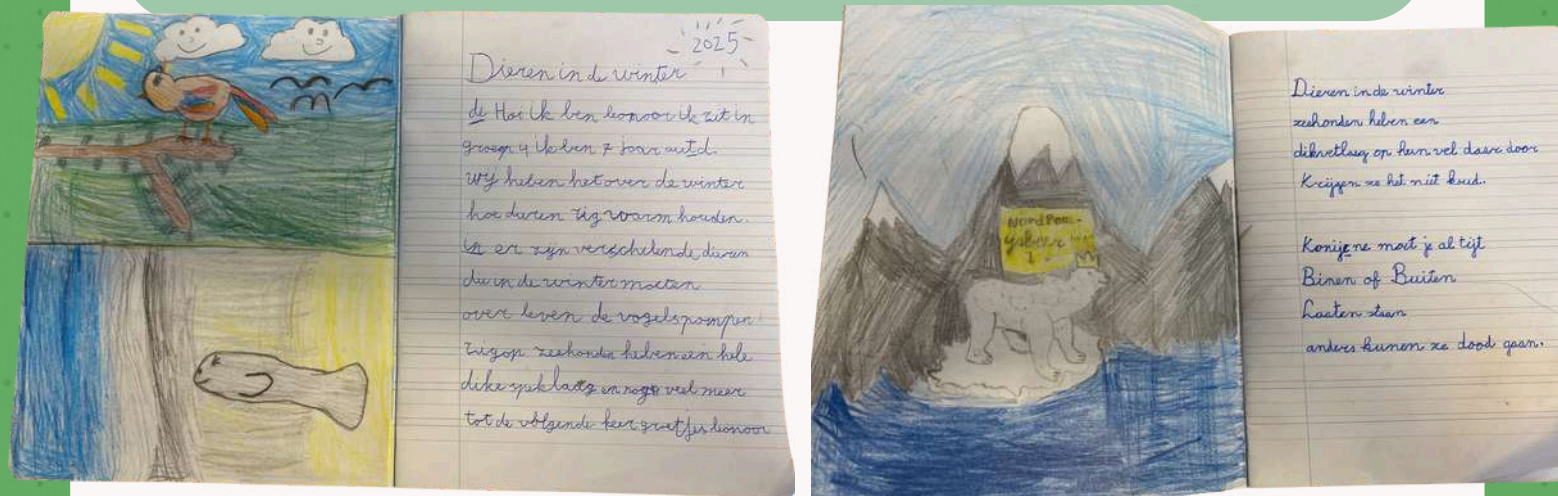 2025
Dieren in de winter
de Hoi ik ben leonoor ik zit in
groep 4 ik ben 7 jaar autd.
wij heben het over de winter
hoe dieren zig warm houden.
in er zijn verschelende dieren
die in de winter moeten
over leven de vogels pompen
zig op zeehonden heben een hele
dike speklaag en nog veel meer
tot de volgende keer groetjes leonoor
Noordpool
ysbeer
1
Dieren in de winter
zeehonden heben een
dikvetlaag op hun vel daar door
Krijgen ze het niet koud.
Konijene moet je al tijt
Binen of Buiten
Laaten staan
anders kunen ze dood gaan.